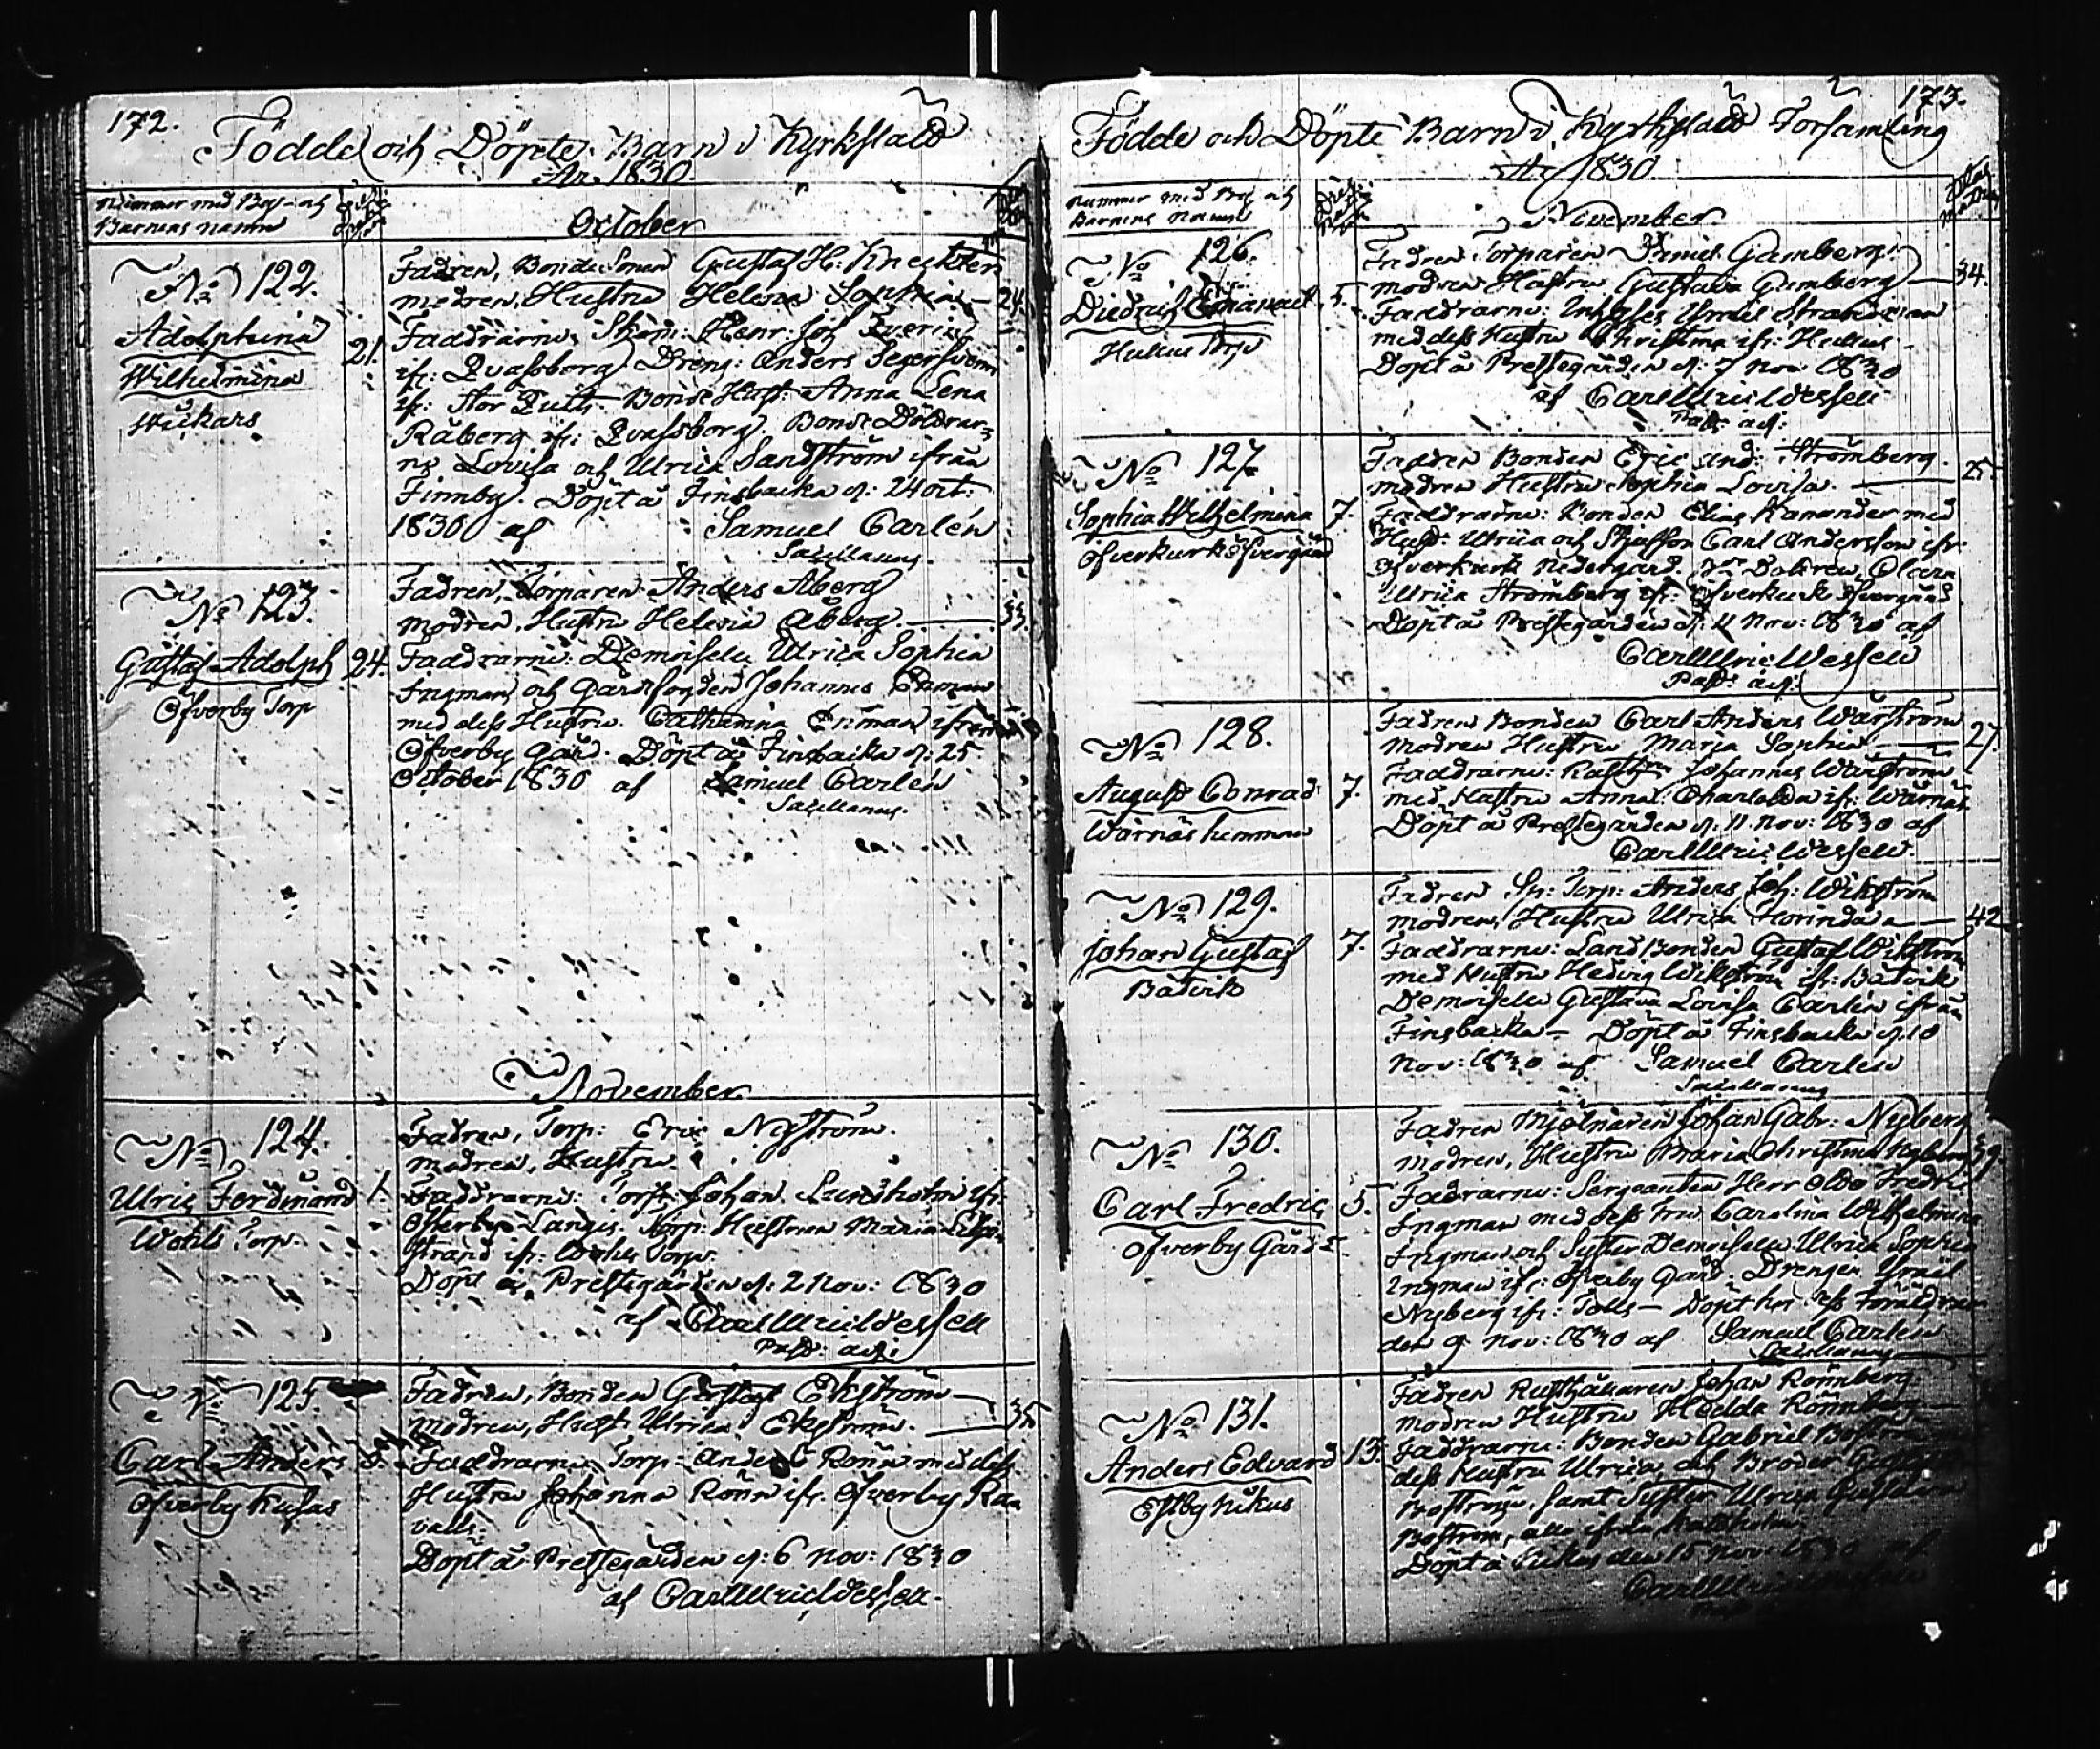 172.
Födde och Döpte Barn i Kyrkslätt
År 1830.
Nummer med By och
Barnens namn
October
No 122.
Adolphina
Wilhelmina
21.
Fadren, Bonde Sonen Gustaf H: Knecktén
modren, Hustru Helena Sophia — 24.
Faddrarne, Henr: Joh
ifr: Qvafsborg Dreng: Anders
ifr: Stor Bonde Hust: Anna Lena
Råberg ifr: Qvafsborg. Bonde Döttrar-
ne Lovisa och Ulrica Sandström ifrån
Finnby. Döpt å Finsbacka d: 24 oct:
1830 af Samuel Carlén
Sacellanus.
No 123.
Gustaf Adolph
Öfverby Torp
24.
Fadren, Torparen Anders Åberg
modren, Hustru Helena Åberg. — 33.
Faddrarne: Demoiselle Ulrica Sophia
Ingman och Gårdsfogden Johannes Enman
med dess Hustru Catharina Enman ifrån
Öfverby Gård. Döpt å Finsbacka d: 25
October 1830 af Samuel Carlén
Sacellanus.
November
No 124.
Ulric Ferdinand
Wohls Torp
1.
Fadren, Torp: Eric Nyström.
modren, Hustru
Faddrarne: Torp: Johan Lundholm ifr:
Österby Långis. Torp: Hustrun Maria
Strand ifr: Wohls Torp.
Döpt å Prestegården d: 2 Nov: 1830
af Carl Ulric Wessell
Past: adj:
No 125.
Carl Anders
Öfverby Kusas
Fadren, Bonden Gustaf Ekström
modren, Hust: Ulrica Ekström. — 35
Faddrarne Torp: Anders Rönn med dess
Hustru Johanna Rönn ifr: Öfverby Raa
valls.
Döpt å Prestegården d: 6 Nov: 1830
af Carl Ulric Wessell.
173.
Födde och Döpte Barn i Kyrkslätt Församling
År 1830
Nummer med By och
Barnens Namn
November
No 126.
Diedrich Emanuel
Torp
5.
Fadren Torparen Gamberg.
modren Hustru Gustava Gamberg — 34.
Faddrarne: Inhyses
med dess Hustru Christina ifr:
Döpt å Prestegården d: 7 Nov: 1830
af Carl Ulric Wessell
Past: adj:
No 127.
Sophia Wilhelmina
Öfverkurk Öfvergård
7.
Fadren Bonden Eric And: Strömberg.
modren Hustru Sophia Lovisa. — 25.
Faddrarne: Bonden Elias Kanander med
Hust: Ulrica och Carl Andersson ifr:
Öfverkurk Nedergård. Dottren Clara
Ulrica Strömberg ifr: Öfverkurk Öfvergård
Döpt å Prestegården d: 11 Nov: 1830 af
Carl Ulric Wessell
Past: adj:
No 128.
August Conrad
Wärnäs hemman
7.
Fadren Bonden Carl Anders Warström
Modren Hustru Maria Sophia — 27.
Faddrarne: Johannes Warström
med Hustru Anna Charlotta ifr: Wärnäs
Döpt å Prestegården d: 11. Nov: 1830 af
Carl Ulric Wessell.
No 129.
Johan Gustaf
Båtvik
7.
Fadren Sp: Torp: Anders Joh: Wikström
modren, Hustru Ulrica Florinda — 42
Faddrarne: LandBonden Gustaf Wikström
med Hustru Hedvig Wikström ifr: Båtvik
Demoiselle Gustava Lovisa Carlén ifrån
Finsbacka — Döpt å Finsbacka d. 10
Nov: 1830 af Samuel Carlén
Sacellanus
No 130.
Carl Fredric
Öfverby Gård
5.
Fadren Mjölnaren Johan Gabr: Nyberg
modren, Hustru Maria Christina Nyberg 39.
Faddrarne: Sergeanten Herr Otto Fredric
Ingman med dess Fru Carolina Wilhelmina
Ingman och Syster Demoiselle Ulrica Sophia
Ingman ifr: Öfverby Gård. Drengen
Nyberg ifr: Tolls — Döpt hos dess Föräldrar
den 9 Nov: 1830 af Samuel Carlén
Sacellanus
No 131.
Anders Edvard
13.
Fadren Rusthållaren Johan Rönnberg
modren Hustru Hedda Rönnberg
Faddrarne: Bonden Gabriel Boström
dess Hustru Ulrica, och Broder Gustaf
Boström, samt Syster Ulrica
Boström, alla ifrån
Döpt å den 15 Nov: 1830 af
Carl Ulric Wessell